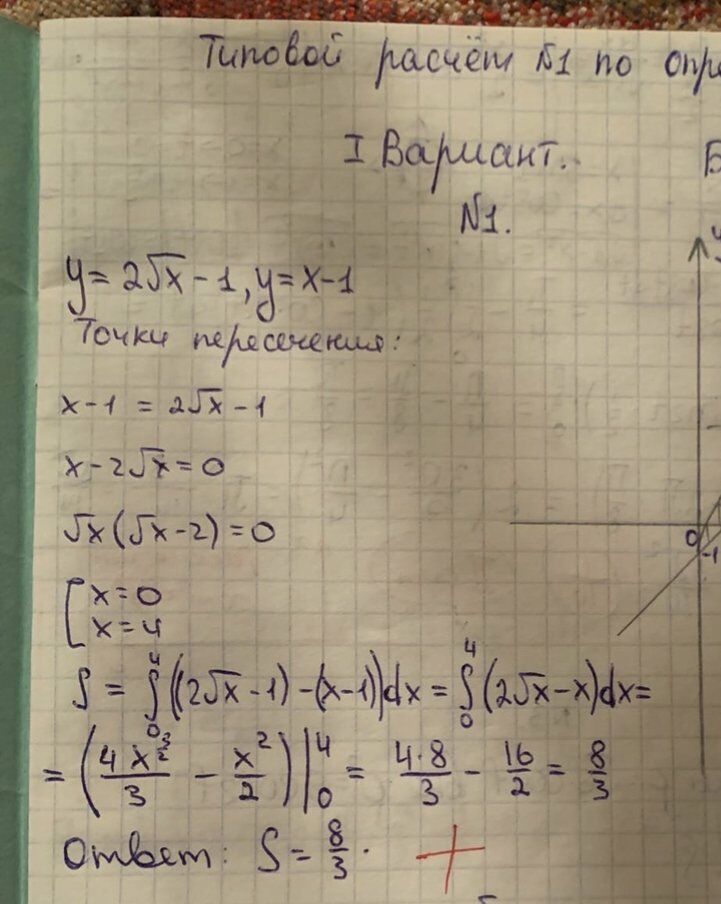 Типовой расчёт №1 по опре
I Вариант.
№1.
y = 2√x - 1, y = x-1
Точки пересечения:
x-1 = 2√x - 1
x-2√x = 0
√x(√x-2) = 0
[x=0
x=4
S = ∫₀⁴((2√x-1)-(x-1))dx = ∫₀⁴(2√x-x)dx=
= (4x^(3/2)/3 - x²/2)|₀⁴ = 4·8/3 - 16/2 = 8/3
Ответ: S = 8/3.
0
-1